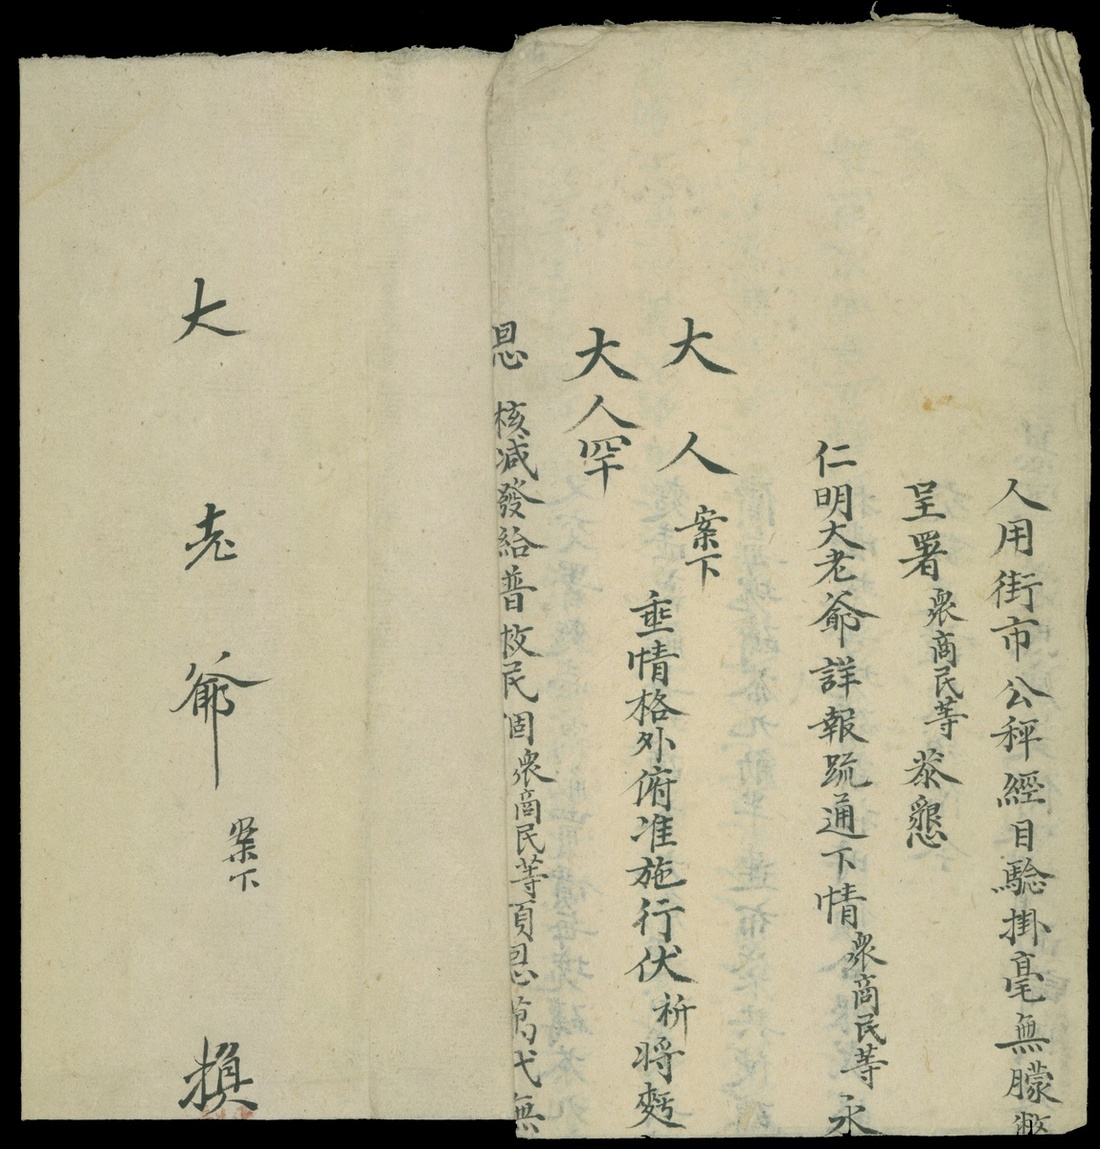 人用街市公秤經目驗掛毫無朦弊
呈署衆商民等恭懇
仁明大老爺詳報疏通下情衆商民等永
大人案下
垂情格外俯准施行伏祈將
大人罕
恩核減發給普枚民困衆商民等頂恩萬代無
大老爺案下